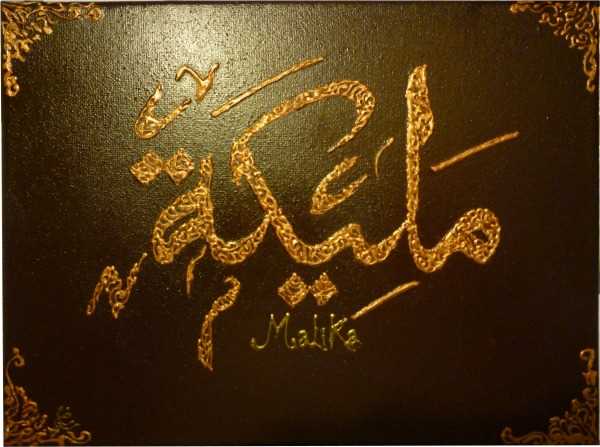 مليكة
Malika